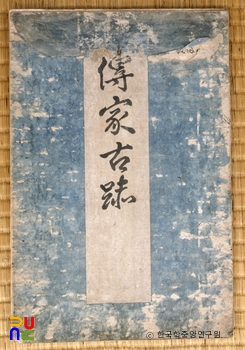 傳家古蹟
© 한국학중앙연구원